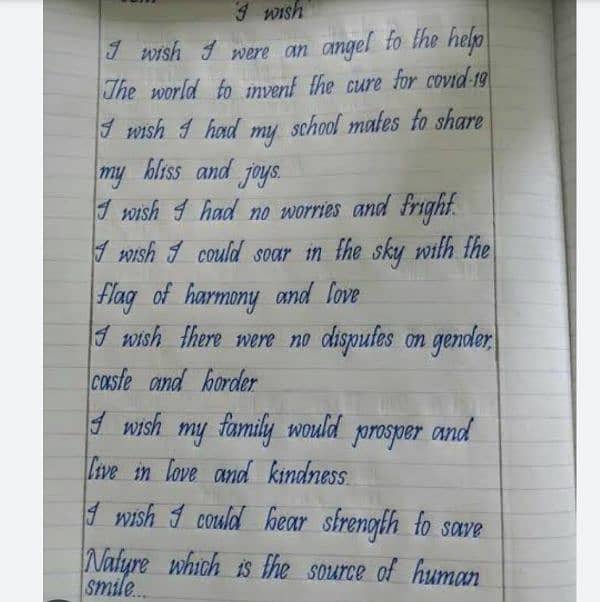 I wish
I wish I were an angel to the help
The world to invent the cure for covid-19
I wish I had my school mates to share
my bliss and joys.
I wish I had no worries and fright.
I wish I could soar in the sky with the
flag of harmony and love
I wish there were no disputes on gender,
caste and border
I wish my family would prosper and
live in love and kindness.
I wish I could bear strength to save
Nature which is the source of human
smile...